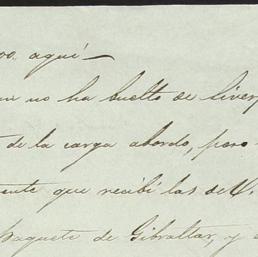 aquí —
no ha buelto de Liverp
de la carga abordo, pero
que recibí las de V.
Paquete de Gibraltar, y